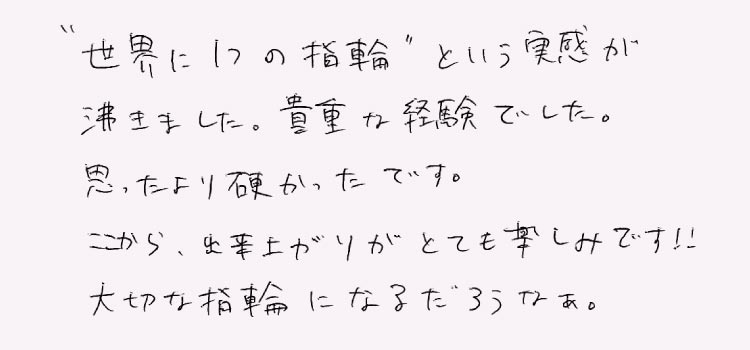 "世界に1つの指輪"という実感が
沸きました。貴重な経験でした。
思ったより硬かったです。
ここから、出来上がりがとても楽しみです!!
大切な指輪になるだろうなぁ。